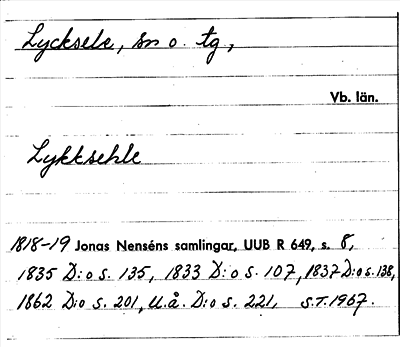 Lycksele, sn o. tg,
Vb. län.
Lykksehle
1818-19 Jonas Nenséns samlingar, UUB R 649, s. 8,
1835 D:o s. 135, 1833 D:o s. 107, 1837 D:o s. 138,
1862 D:o s. 201, U.å. D:o s. 221, S.T. 1967.